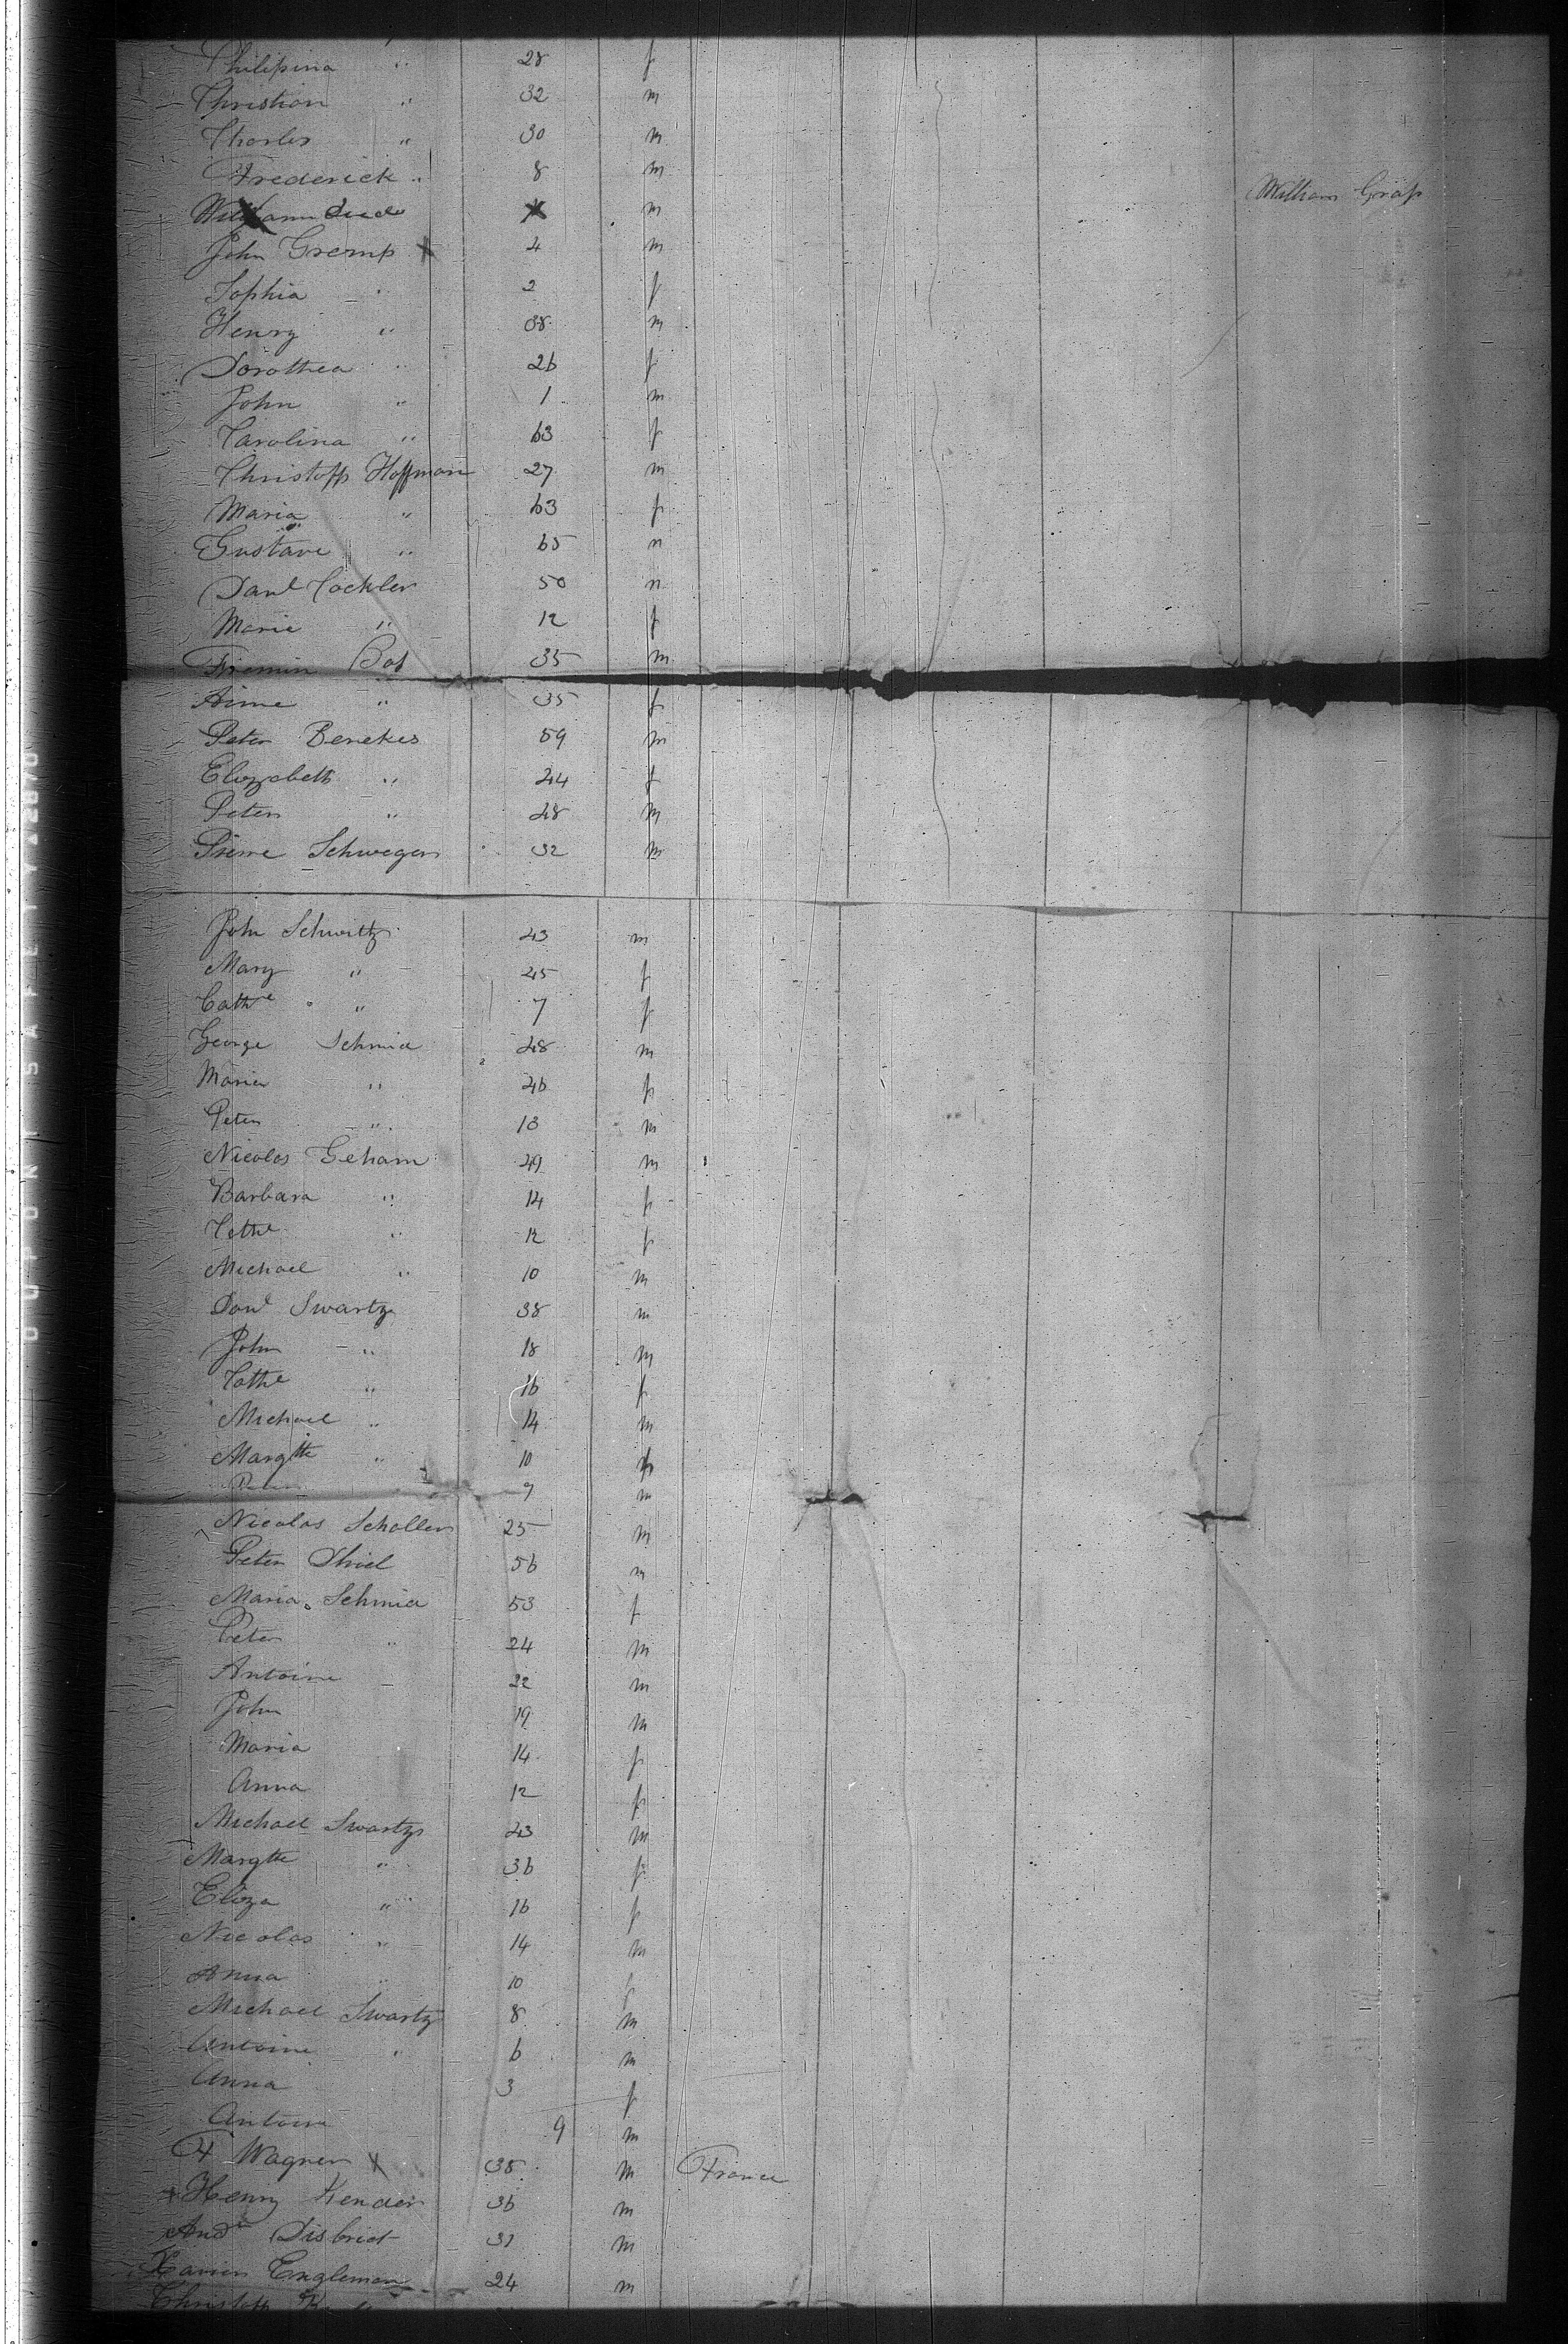 Philipina " 28 f
Christian " 32 m
Charles " 30 m
Frederick " 8 m
William died m William Graf
John Gremp x 4 m
Sophia " 2 f
Henry " 38 m
Dorothea " 26 f
John " 1 m
Carolina " 63 f
Christoph Hoffman 27 m
Maria " 63 f
Gustave " 65 m
Danl Cockler 50 m
Marie " 12 f
Firmin Bot 35 m
Aime " 35 f
Peter Benekes 59 m
Elizabeth " 24 f
Peter " 28 m
Pierre Schweger 32 m
John Schwitz 43 m
Mary " 45 f
Cathe " 7 f
George Schmid 48 m
Maria " 46 f
Peter " 13 m
Nicolas Geham 49 m
Barbara " 14 f
Cathe " 12 f
Michael " 10 m
Danl Swartz 38 m
John " 18 m
Cathe " 16 f
Michael " 14 m
Margtte " 10 f
Peter 7 m
Nicolas Scholler 25 m
Peter Thiel 56 m
Maria Schmid 53 f
Peter " 24 m
Antoine 22 m
John 19 m
Maria 14 f
Anna 12 f
Michael Swartz 43 m
Margtte " 36 f
Eliza " 16 f
Nicolas " 14 m
Anna " 10 f
Michael Swartz 8 m
Antoine " 6 m
Anna 3 f
Antoine 9 m
F Wagner x 38 m France
Henry Kender 36 m
Andw Disbriet 31 m
Xavier Engleman 24 m
Christoph